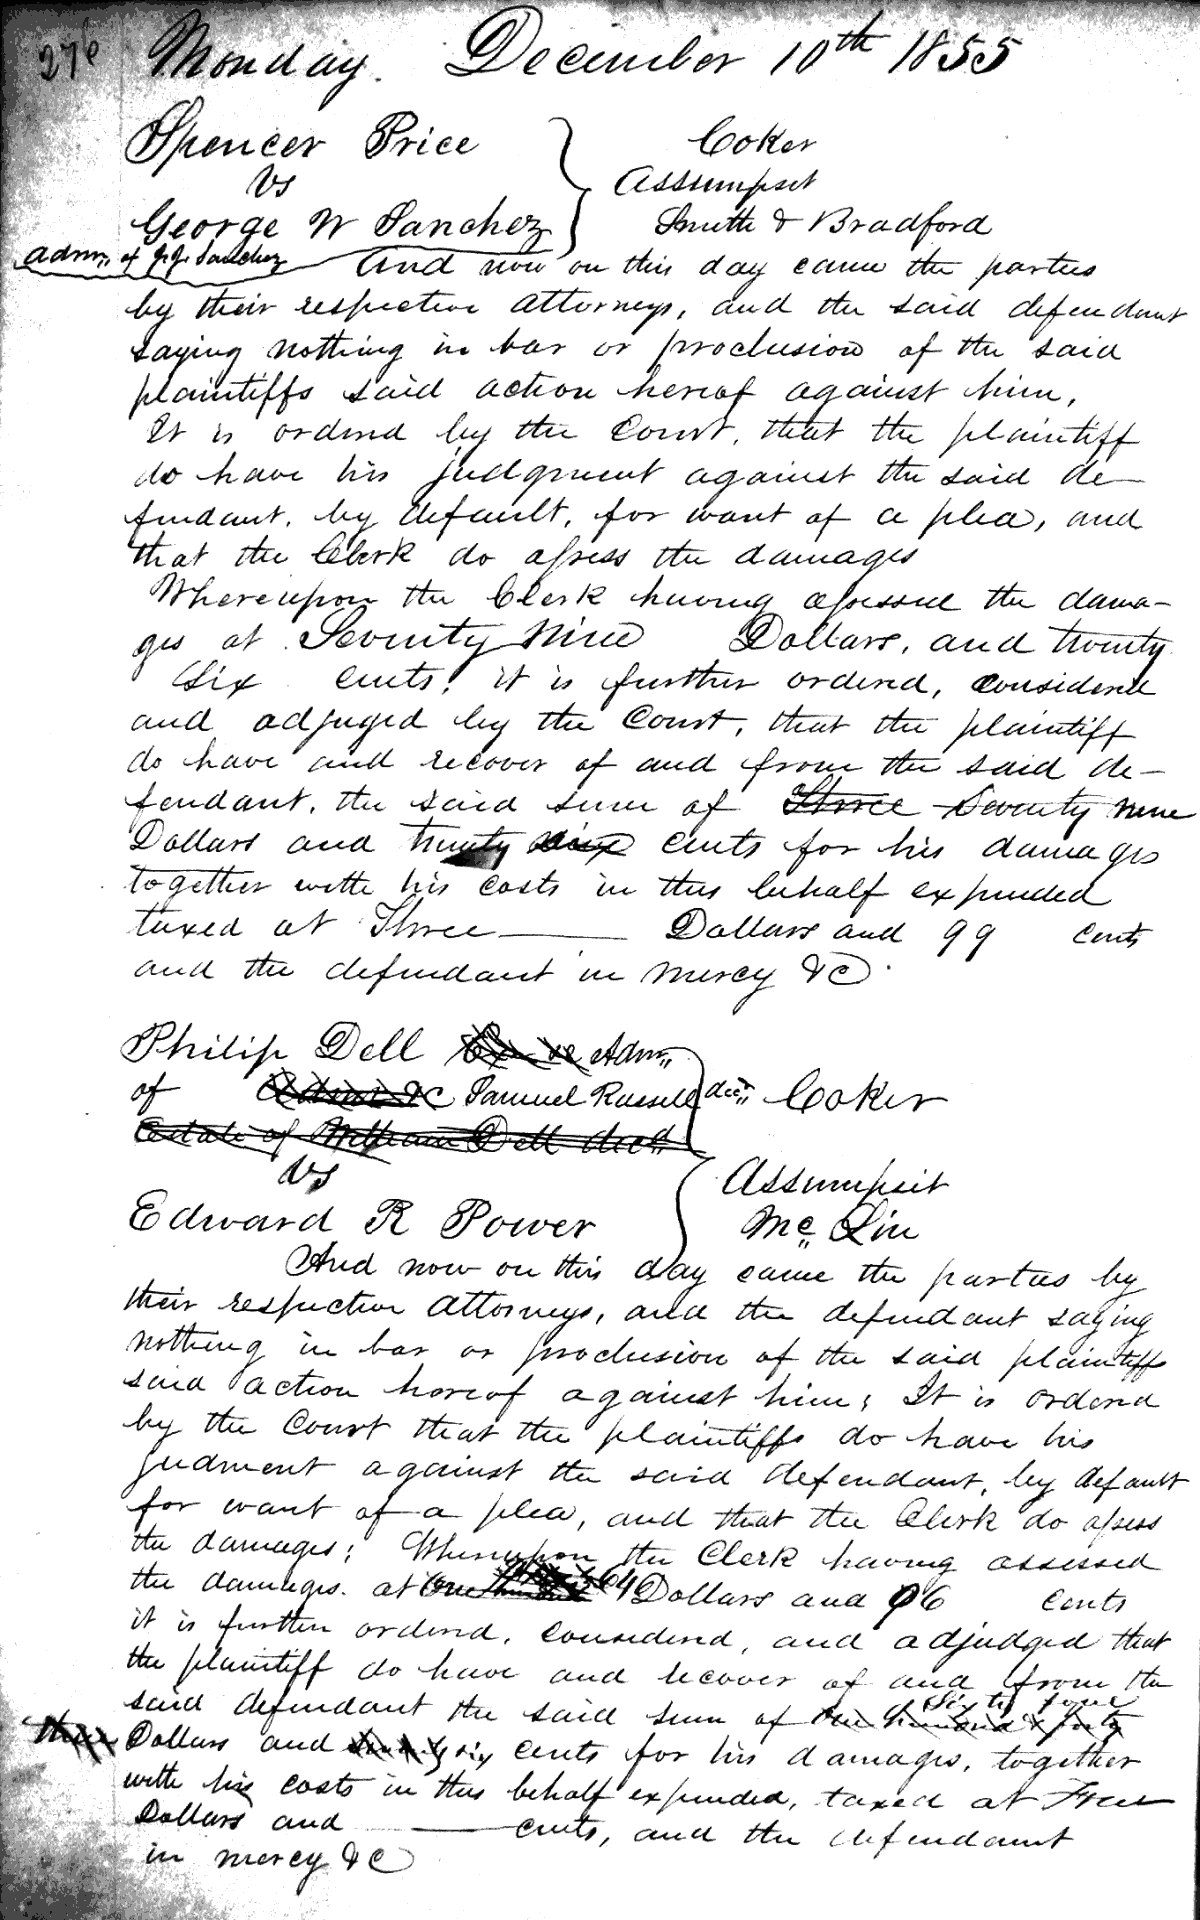 276 Monday. December 10th 1855
Spencer Price Coker
vs Asssumpsit
George W Sanchez Smith & Bradford
Admr,, of J. J. Sanchez And now on this day came the parties
by their respective attorneys, and the said defendant
saying nothing in bar or proclusion of the said
plaintiffs said action hereof against him,
It is ordered by the Court, that the plaintiff
do have his judgment against the said de-
fendant, by default, for want of a plea, and
that the Clerk do assess the damages
Whereupon the Clerk having assessed the dama-
ges at Seventy Nine Dollars, and twenty
Six cents; it is further ordered, considered
and adjuged by the Court, that the plaintiff
do have and recover of and from the said de-
fendant, the said sum of Three Seventy nine
Dollars and twenty six cents for his damages
together with his costs in this behalf expended
taxed at Three Dollars and 99 cents
and the defendant in mercy &C.
Philip Dell Admr,,
of Admr &C Samuel Russell decd,, Coker
Estate of William Dell decd
vs Assumpsit
Edward R Power Mc,, Lin
And now on this day came the parties by
their respective attorneys, and the defendant saying
nothing in bar or proclusion of the said plaintiffs
said action hereof against him; It is ordered
by the Court that the plaintiffs do have his
judment against the said defendant, by default
for want of a plea, and that the Clerk do assess
the damages; Whereupon the Clerk having assessed
the damages. at One 64 Dollars and 96 cents
it is further ordered, considered, and adjudged that
the plaintiff do have and recover of and from the
said defendant the said sum of One hundred & forty Sixty four
three Dollars and six cents for his damages, together
with his costs in this behalf expended, taxed at Free
Dollars and cents, and the defendant
in mercy &C